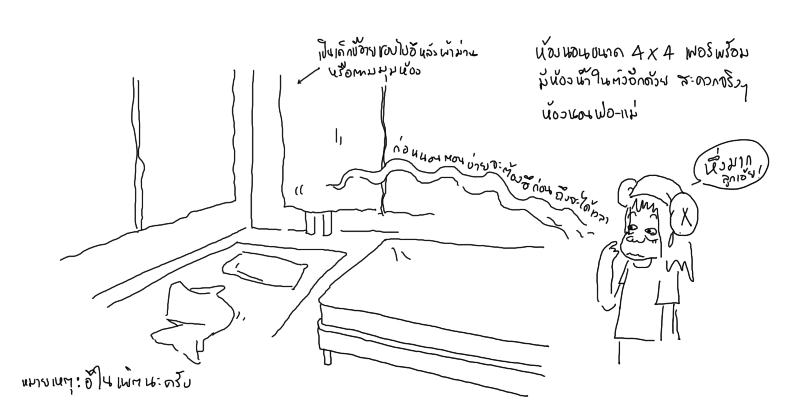 เป็นเด็กขี้อายชอบไปอึหลังผ้าม่าน
หรือตามมุมห้อง
ห้องนอนขนาด 4 x 4 เฟอร์พร้อม
มีห้องน้ำในตัวอีกด้วย สะดวกจริงๆ
ห้องนอนพ่อ-แม่
ก่อนนอนตอนบ่ายจะต้องอึก่อนถึงจะได้เวลา
หึ่งมาก
ลูกเอ้ย!
X
หมายเหตุ: อึในแพ้ดนะครับ